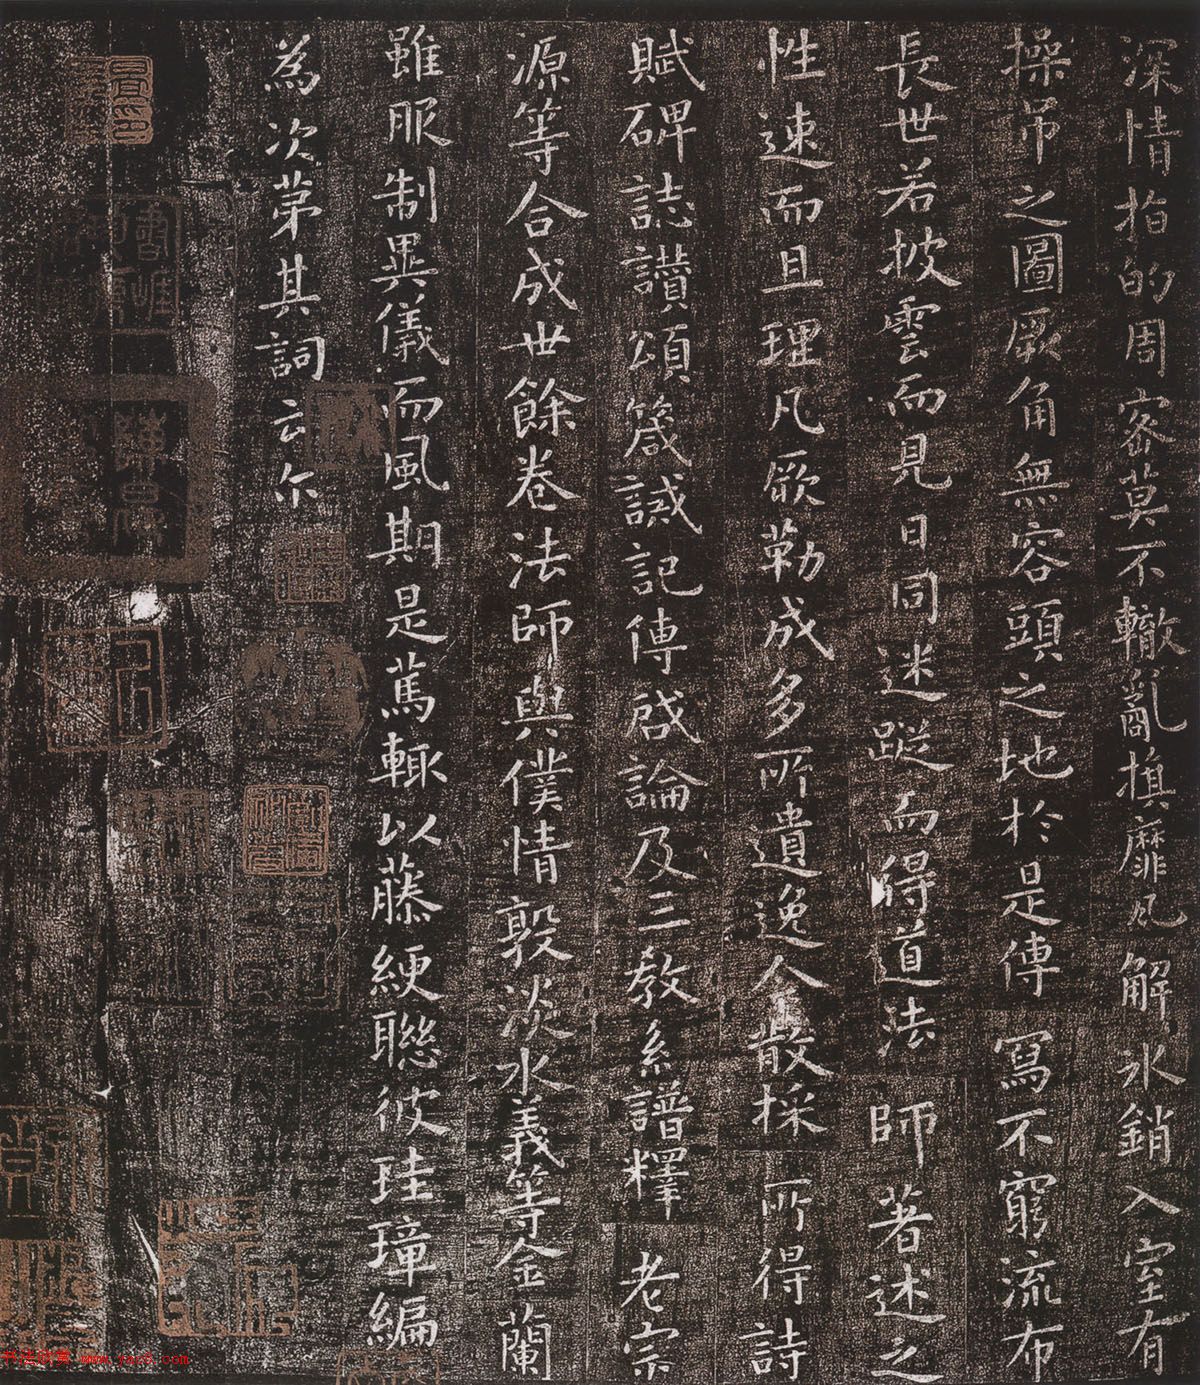 深情指的周密莫不轍亂旗靡凡解氷銷入室有
操吊之圖厥角無容頭之地於是傳寫不窮流布
長世若披雲而見日同迷蹤而得道法師著述之
性速而且理凡厥勒成多所遺逸今散採所得詩
賦碑誌讚頌箴誡記傳啟論及三教系譜釋老宗
源等合成世餘卷法師與僕情敦淡水義等金蘭
雖服制異儀而風期是篤輒以藤綆聯彼珪璋編
為次第其詞云尔
书法欣赏 www.yac8.com